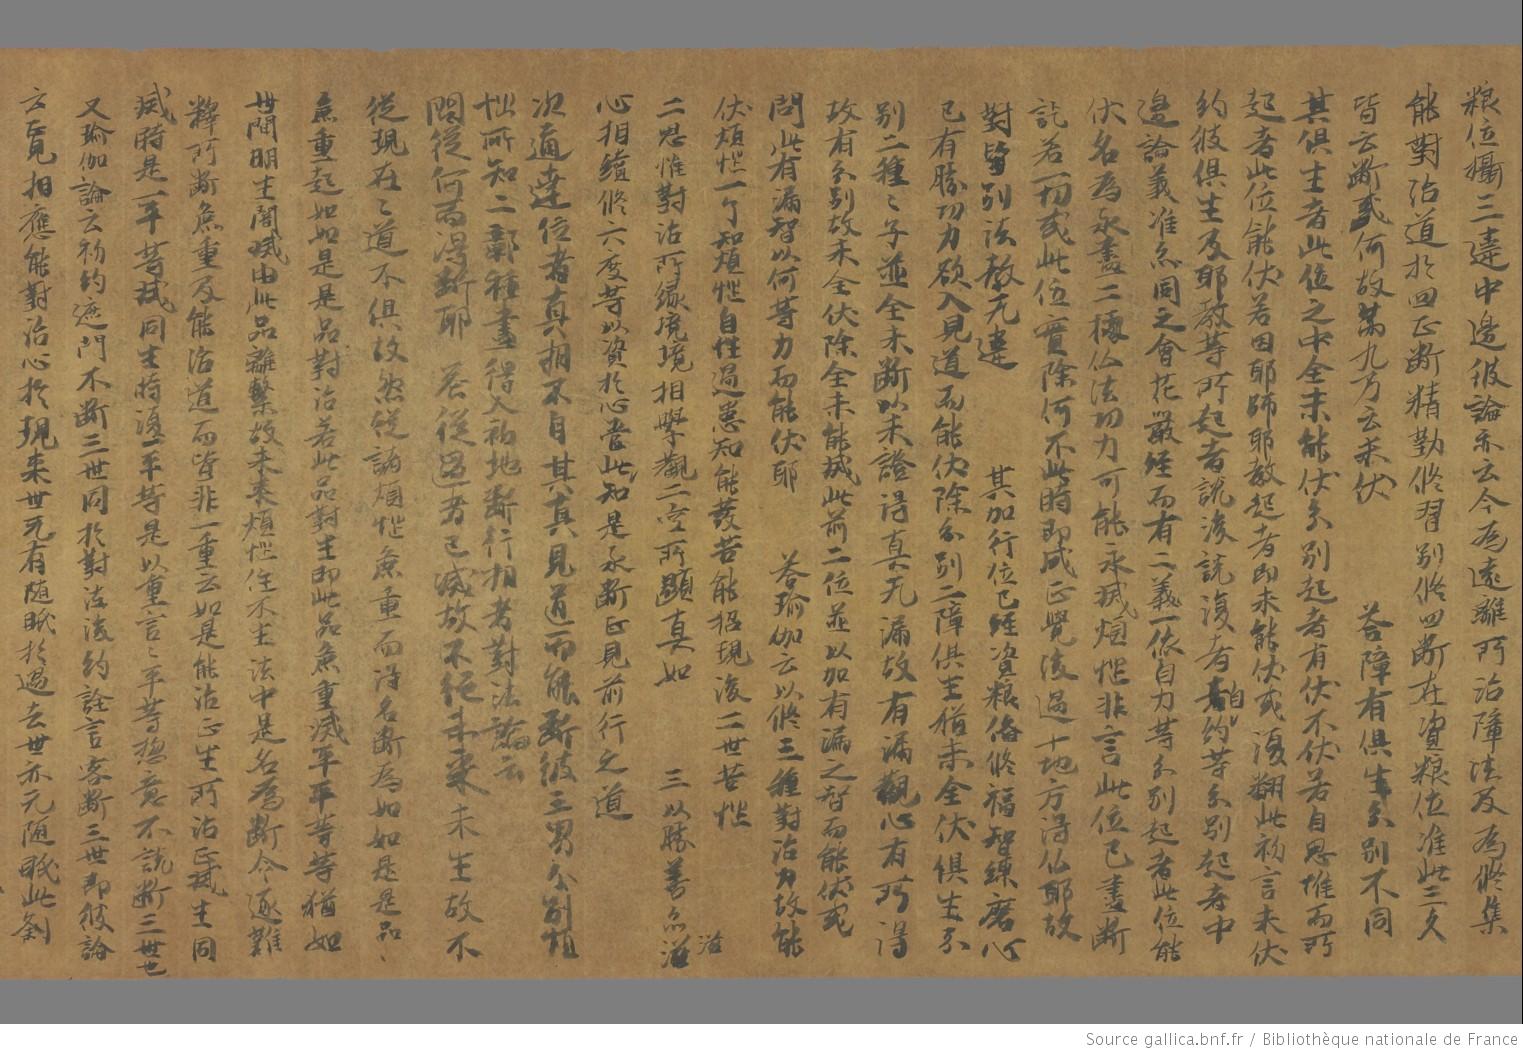 粮位攝三違中邊彼論亦云今為遠離所治障法及為修集
能對治道於四正斷精勤修習別修四斷在資粮位准此三久
皆云斷或何故第九方云未伏 答障有俱生分別不同
其俱生者此位之中全未能伏分別起者有伏不伏若自思惟而所
起者此位能伏若因耶師耶教起者即未能伏或復翻此初言未伏
約彼俱生及耶教等所起者說後說復者自約等分別起者中
邊論義准亦同之會花嚴經而有二義一依自力等分別起者此位能
伏名為永盡二據仏法功力可能永滅煩惱非言此位已盡斷
訖若一切或此位實除何不此時即成正覺後過十地方得仏耶故
對皆別法教无違 其加行位已經資粮俻修福智練磨心
已有勝功力欲入見道而能伏除分別二障俱生猶未全伏俱生分
別二種〻子並全未斷以未證得真无漏故有漏觀心有所得
故有分別故未全伏除全未能滅此前二位並以加有漏之智而能伏或
問此有漏智以何等力而能伏耶 答瑜伽云以修三種對治力故能
伏煩惱一了知煩惱自性過患知能發苦能招現後二世苦惱
二思惟對治所緣境境相學觀二空所顯真如 三以勝善亦滋
治
心相續修六度等以資於心當此知是永斷正見前行之道
次通達位者真相不自其真見道而能斷彼三界分別煩
惱所知二鄣種盡得入初地斷行相者對法論云
問從何而得斷耶 答從過者已滅故不從未來未生故不
從現在〻道不俱故然從諸煩惱麁重而得名斷為如如是是品〻
麁重起如如是是品對治若此品對生即此品麁重滅平平等等猶如
世間明生闇滅由此品離繫故未來煩惱住不生法中是名為斷今逐難
釋所斷麁重及能治道而皆非一重云如是能治正生所治正滅生同
滅時是一平等滅同生時須一平等是以重言〻平等揔意不說斷三世也
又瑜伽論云初約遮門不斷三世同於對法後約詮言容斷三世即彼論
云正見相應能對治心於現来世无有随眠於過去世亦元随眠此剎